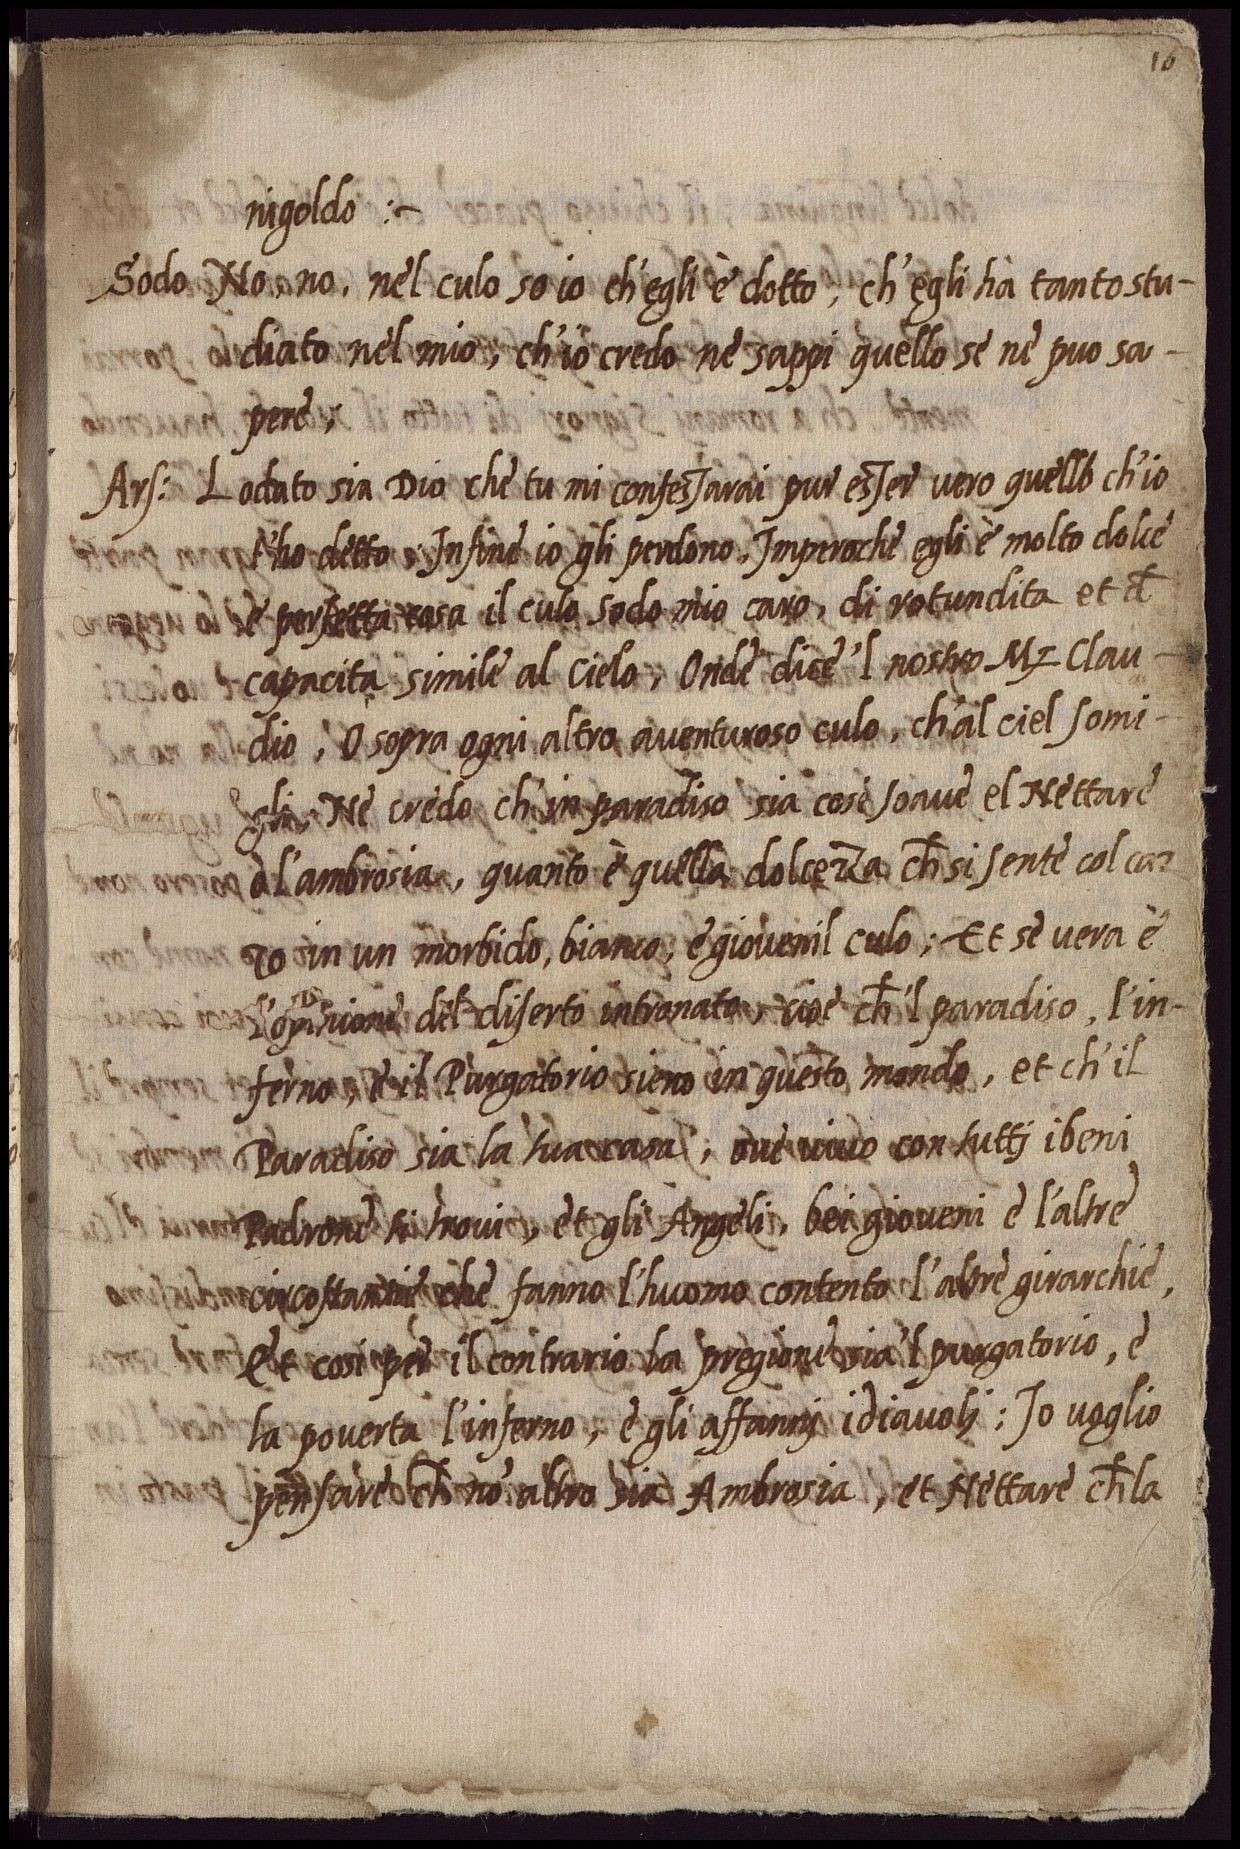 10
nigoldo :~
Sodo No, no, nel culo so io ch'egli è dotto, ch'egli hà tanto stu-
diato nel mio, ch'io credo ne sappi quello se ne puo sa-
pere;
Ars: Lodato sia Dio che tu mi confessarai pur esser vero quello ch'io
t'ho detto. Infine io gli perdono. Imperoche egli è molto dolce
e perfetta cosa il culo Sodo mio caro, di rotundita et di
capacita simile al Cielo, Onde dice 'l nostro Mz Clau-
dio, O sopra ogni altro aventuroso culo, ch'al ciel somi-
gli, Ne credo ch'in paradiso sia cosi soave el Nettare
ò l'ambrosia, quanto è quella dolcezza ch̄ si sente col caz
zo in un morbido, bianco, e giovenil culo; Et se vera è
l'opinione del diserto intronato, cioe ch̄'l paradiso, l'in-
ferno, e il Purgatorio sieno in questo mondo, et ch'il
Paradiso sia la tua casa, ove vivo con tuttj i beni
Padrone ti trovi, et gli Angeli, bei gioveni e l'altre
circostantie che fanno l'huomo contento l'altre girarchie,
Et cosi per il contrario la pregione sia'l purgatorio, e
la poverta l'inferno, e gli affannj i diavolj; Io voglio
pensare ch̄ nō altro sia Ambrosia, et Nettare ch̄ la